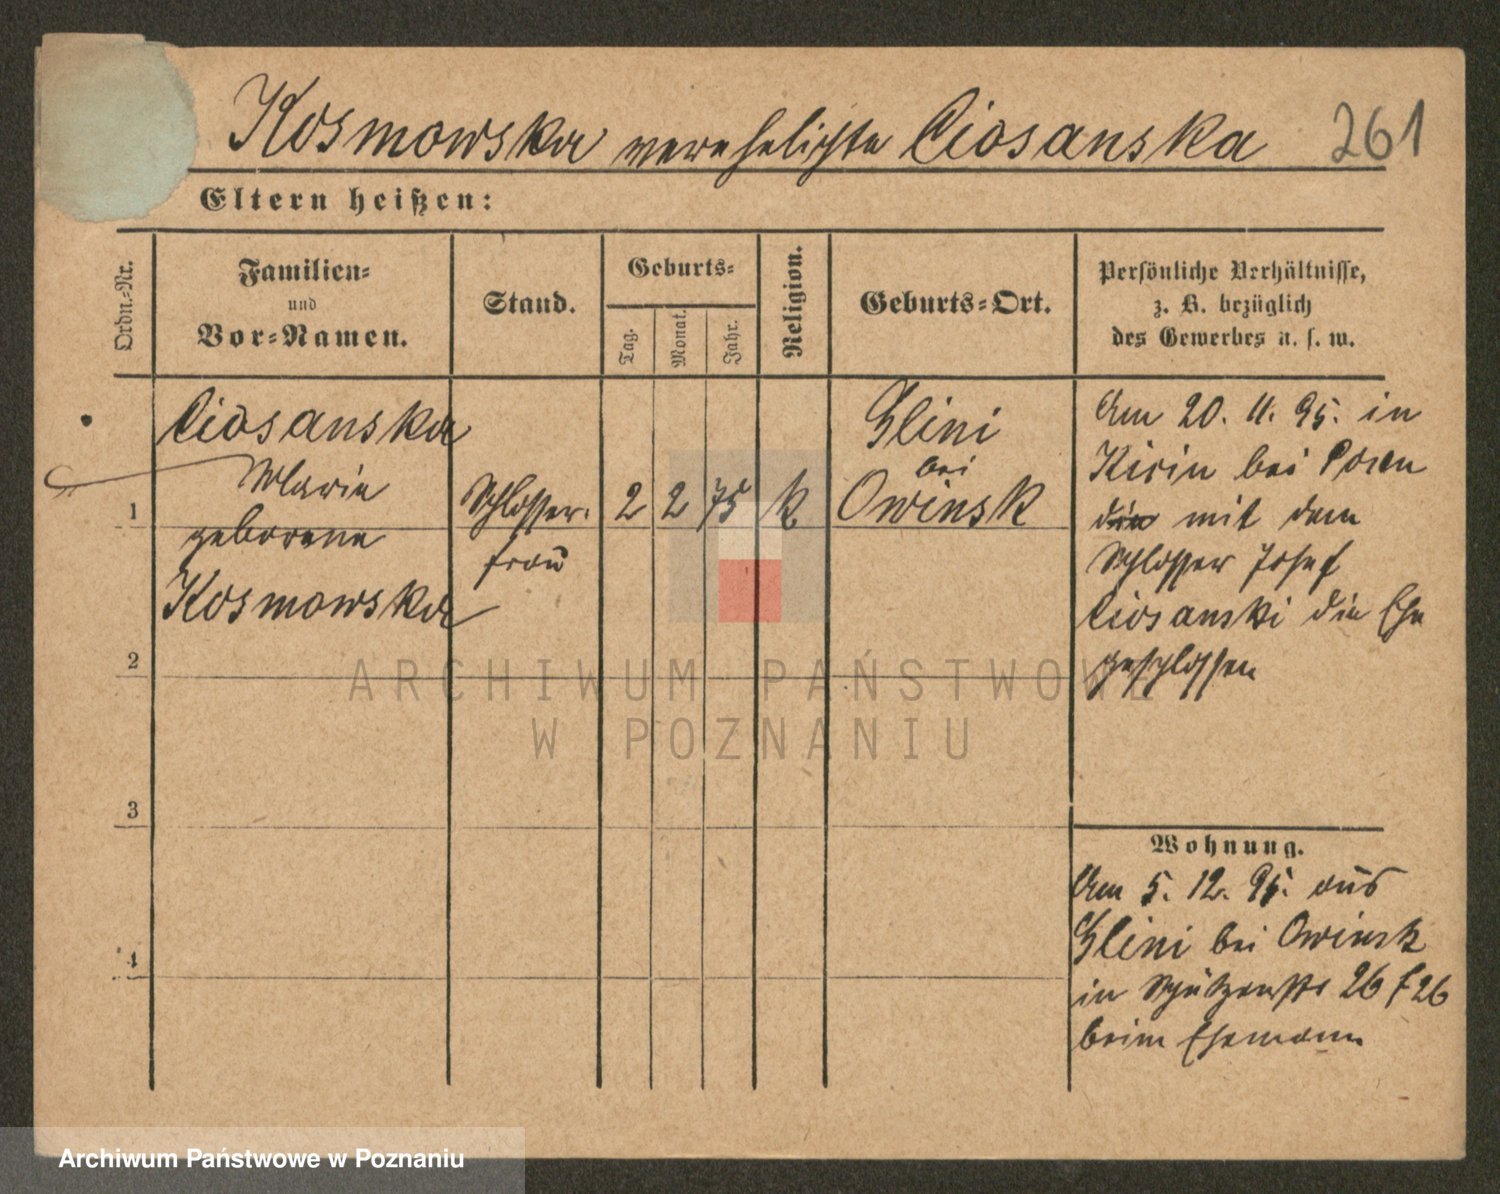 Kosmowska verehelichte Ciosanska 261
Eltern heißen:
Ordn.-Nr.
Familien-
und
Vor-Namen.
Stand.
Geburts-
Tag.
Monat.
Jahr.
Religion.
Geburts-Ort.
Persönliche Verhältnisse,
z. B. bezüglich
des Gewerbes u. s. w.
1
Ciosanska
Marie
geborene
Kosmowska
Schlosser-
frau
2 2 75 k
Glini
bei
Owinsk
Am 20. 11. 95. in
Kicin bei Posen
die mit dem
Schlosser Josef
Ciosanski die Ehe
geschlossen
2
3
4
Wohnung.
Am 5. 12. 95. aus
Glini bei Owinsk
in Schützenstr 26 26
beim Ehemann
ARCHIWUM PAŃSTWOWE
W POZNANIU
Archiwum Państwowe w Poznaniu